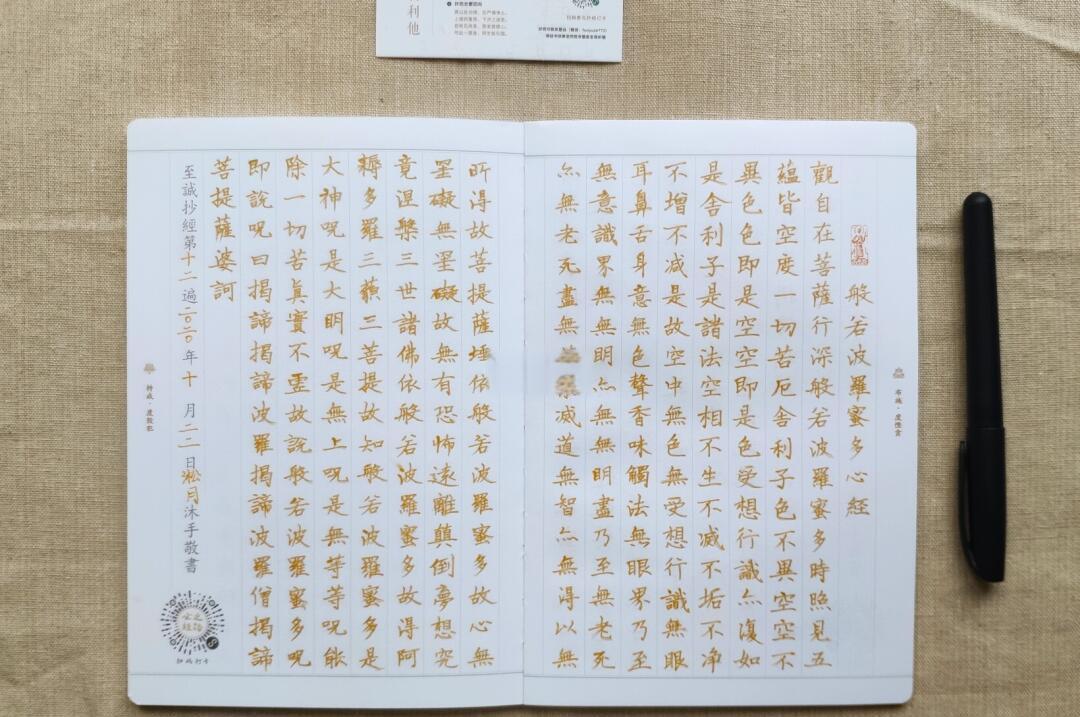 利他
布施·度慳貪
般若波羅蜜多心經
觀自在菩薩行深般若波羅蜜多時照見五
蘊皆空度一切苦厄舍利子色不異空空不
異色色即是空空即是色受想行識亦復如
是舍利子是諸法空相不生不滅不垢不净
不增不減是故空中無色無受想行識無眼
耳鼻舌身意無色聲香味觸法無眼界乃至
無意識界無無明亦無無明盡乃至無老死
亦無老死盡無滅道無智亦無得以無
所得故菩提薩埵依般若波羅蜜多故心無
罣礙無罣礙故無有恐怖遠離顛倒夢想究
竟涅槃三世諸佛依般若波羅蜜多故得阿
耨多羅三藐三菩提故知般若波羅蜜多是
大神呪是大明呪是無上呪是無等等呪能
除一切苦真實不虛故說般若波羅蜜多呪
即說呪曰揭諦揭諦波羅揭諦波羅僧揭諦
菩提薩婆訶
至誠抄經第十二遍二〇二〇年十月二二日淞月沐手敬書
掃碼打卡
持戒·度毀犯